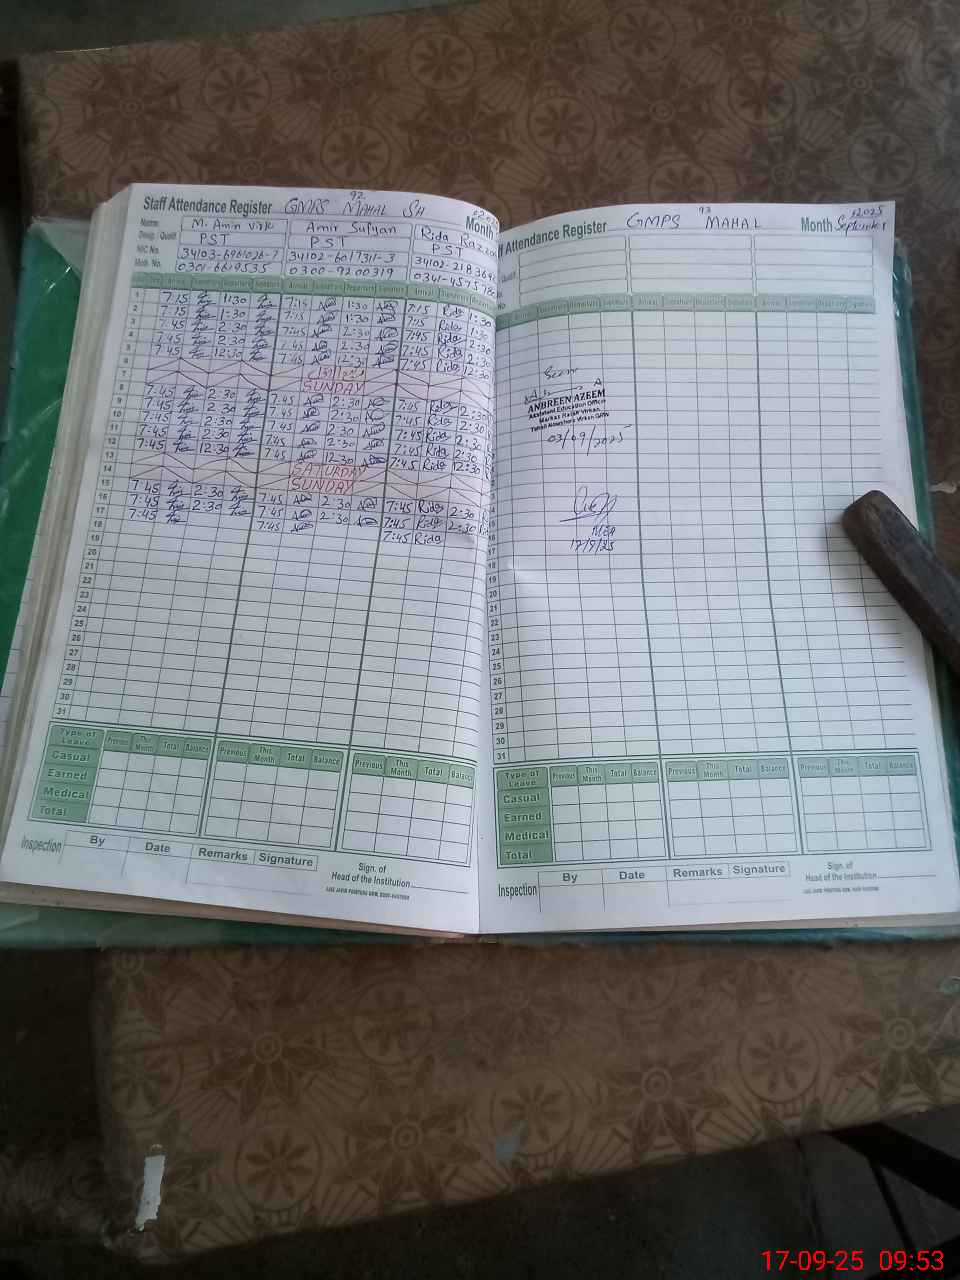 92
Staff Attendance Register GMPS MAHAL SH
Month
Name: M. Amin Virk Amir Sufyan Rida Razzaq
Desig. / Qualif. PST PST PST
NIC No. 34103-6961026-7 34102-6017311-3 34102-218369
Mob. No. 0301-6619535 0300-9200319 0341-4575780
Arrival Signature Departure Signature Arrival Signature Departure Signature Arrival Signature Departure
1 7:15 1:30 7:15 1:30 7:15 Rida 1:30
2 7:15 1:30 7:15 1:30 7:15 Rida 1:30
3 7:45 2:30 7:45 2:30 7:45 Rida 2:30
4 7:45 2:30 7:45 2:30 7:45 Rida 2:30
5 7:45 12:30 7:45 12:30 7:45 Rida 12:30
6
7 SUNDAY
8 7:45 2:30 7:45 2:30 7:45 Rida 2:30
9 7:45 2:30 7:45 2:30 7:45 Rida 2:30
10 7:45 2:30 7:45 2:30 7:45 Rida 2:30
11 7:45 2:30 7:45 2:30 7:45 Rida 2:30
12 7:45 12:30 7:45 12:30 7:45 Rida 12:30
13 SATURDAY
14 SUNDAY
15 7:45 2:30 7:45 2:30 7:45 Rida 2:30
16 7:45 2:30 7:45 2:30 7:45 Rida 2:30
17 7:45 7:45 7:45 Rida
18
19
20
21
22
23
24
25
26
27
28
29
30
31
Type of Leave Previous This Month Total Balance Previous This Month Total Balance Previous This Month Total Balance
Casual
Earned
Medical
Total
Inspection By Date Remarks Signature Sign. of
Head of the Institution
93
ff Attendance Register GMPS MAHAL Month September
2025
Qualif.
No.
Arrival Signature Departure Signature Arrival Signature Departure Signature
Seen
ANBREEN AZEEM
Assistant Education Officer
Markaz Radar Virkan,
Tehsil Nowshera Virkan GRW
03/09/2025
MEA
17/9/25
16
18
19
20
21
22
23
24
25
26
27
28
29
30
31
Type of Leave Previous This Month Total Balance Previous This Month Total Balance Previous This Month Total Balance
Casual
Earned
Medical
Total
Inspection By Date Remarks Signature Sign. of
Head of the Institution
17-09-25 09:53